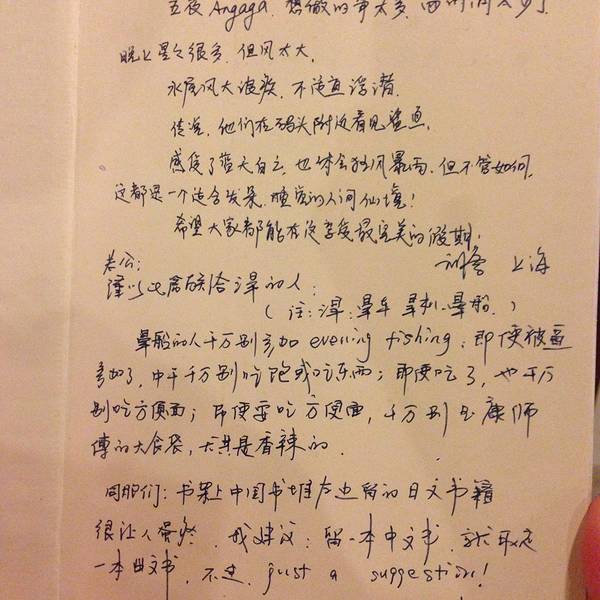 五夜 Angaga. 想做的事太多, 时间太少.
晚上星星很多, 但风太大.
水屋风大浪疾, 不适宜浮潜.
传说, 他们在码头附近看见鲨鱼.
感受了蓝天白云, 也体会狂风暴雨, 但不管如何,
这都是一个适合发呆, 的人间仙境!
希望大家都能在这享受最完美的假期!
上海
老公:
谨以此篇献给 晕的人:
( 注: 晕: 晕车 晕机、晕船. )
晕船的人千万别参加 evening fishing. 即便被逼
参加了, 中午千万别吃饱或吃东西; 即便吃了, 也千万
别吃方便面; 即便要吃方便面, 千万别 康师
傅的大食袋, 尤其是香辣的.
同胞们: 书架上中国书堆左边留的日文书籍
很让人蛋疼. 我建议: 留一本中文书, 就取走
一本日文书, 不过, just a suggestion!